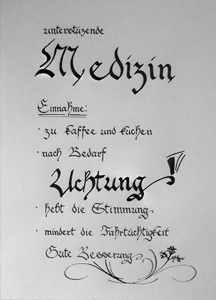 unterstüzende
Medizin
Einnahme:
· zu Kaffee und Kuchen
· nach Bedarf
Achtung!
· hebt die Stimmung
· mindert die Fahrtüchtigkeit
Gute Besserung